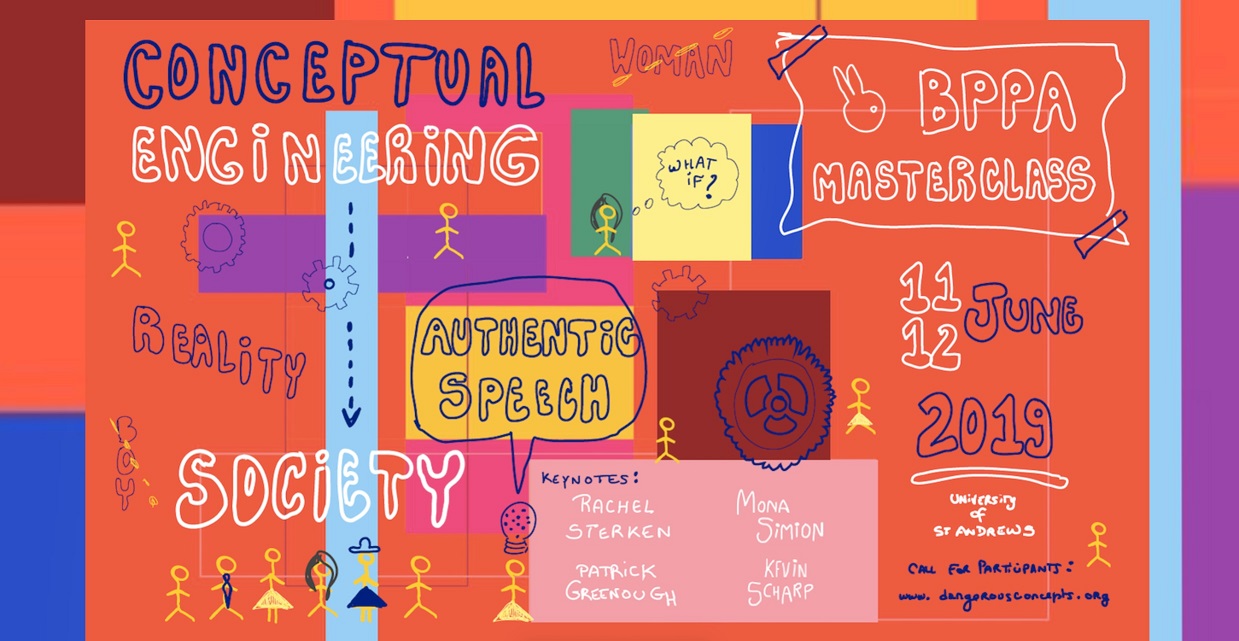 CONCEPTUAL
ENGINEERING
WOMAN
BPPA
MASTERCLASS
WHAT
IF?
11
12
JUNE
2019
REALITY
AUTHENTIC
SPEECH
BOY
SOCIETY
KEYNOTES:
RACHEL
STERKEN
MONA
SIMION
PATRICK
GREENOUGH
KEVIN
SCHARP
UNIVERSITY
OF
ST ANDREWS
CALL FOR PARTICIPANTS:
www. dangerousconcepts.org